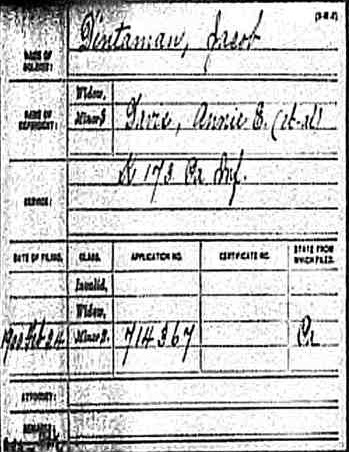 (3-H.2)
NAME OF SOLDIER: Dentaman, Jacob
NAME OF DEPENDENT: Widow,
Minors Annie E. (et al)
SERVICE: K 173 Pa Inf.
DATE OF FILING. CLASS. APPLICATION NO. CERTIFICATE NO. STATE FROM WHICH FILED.
Invalid,
Widow,
1900 Feb 24 Minors. 714367 Pa
ATTORNEY:
REMARKS: